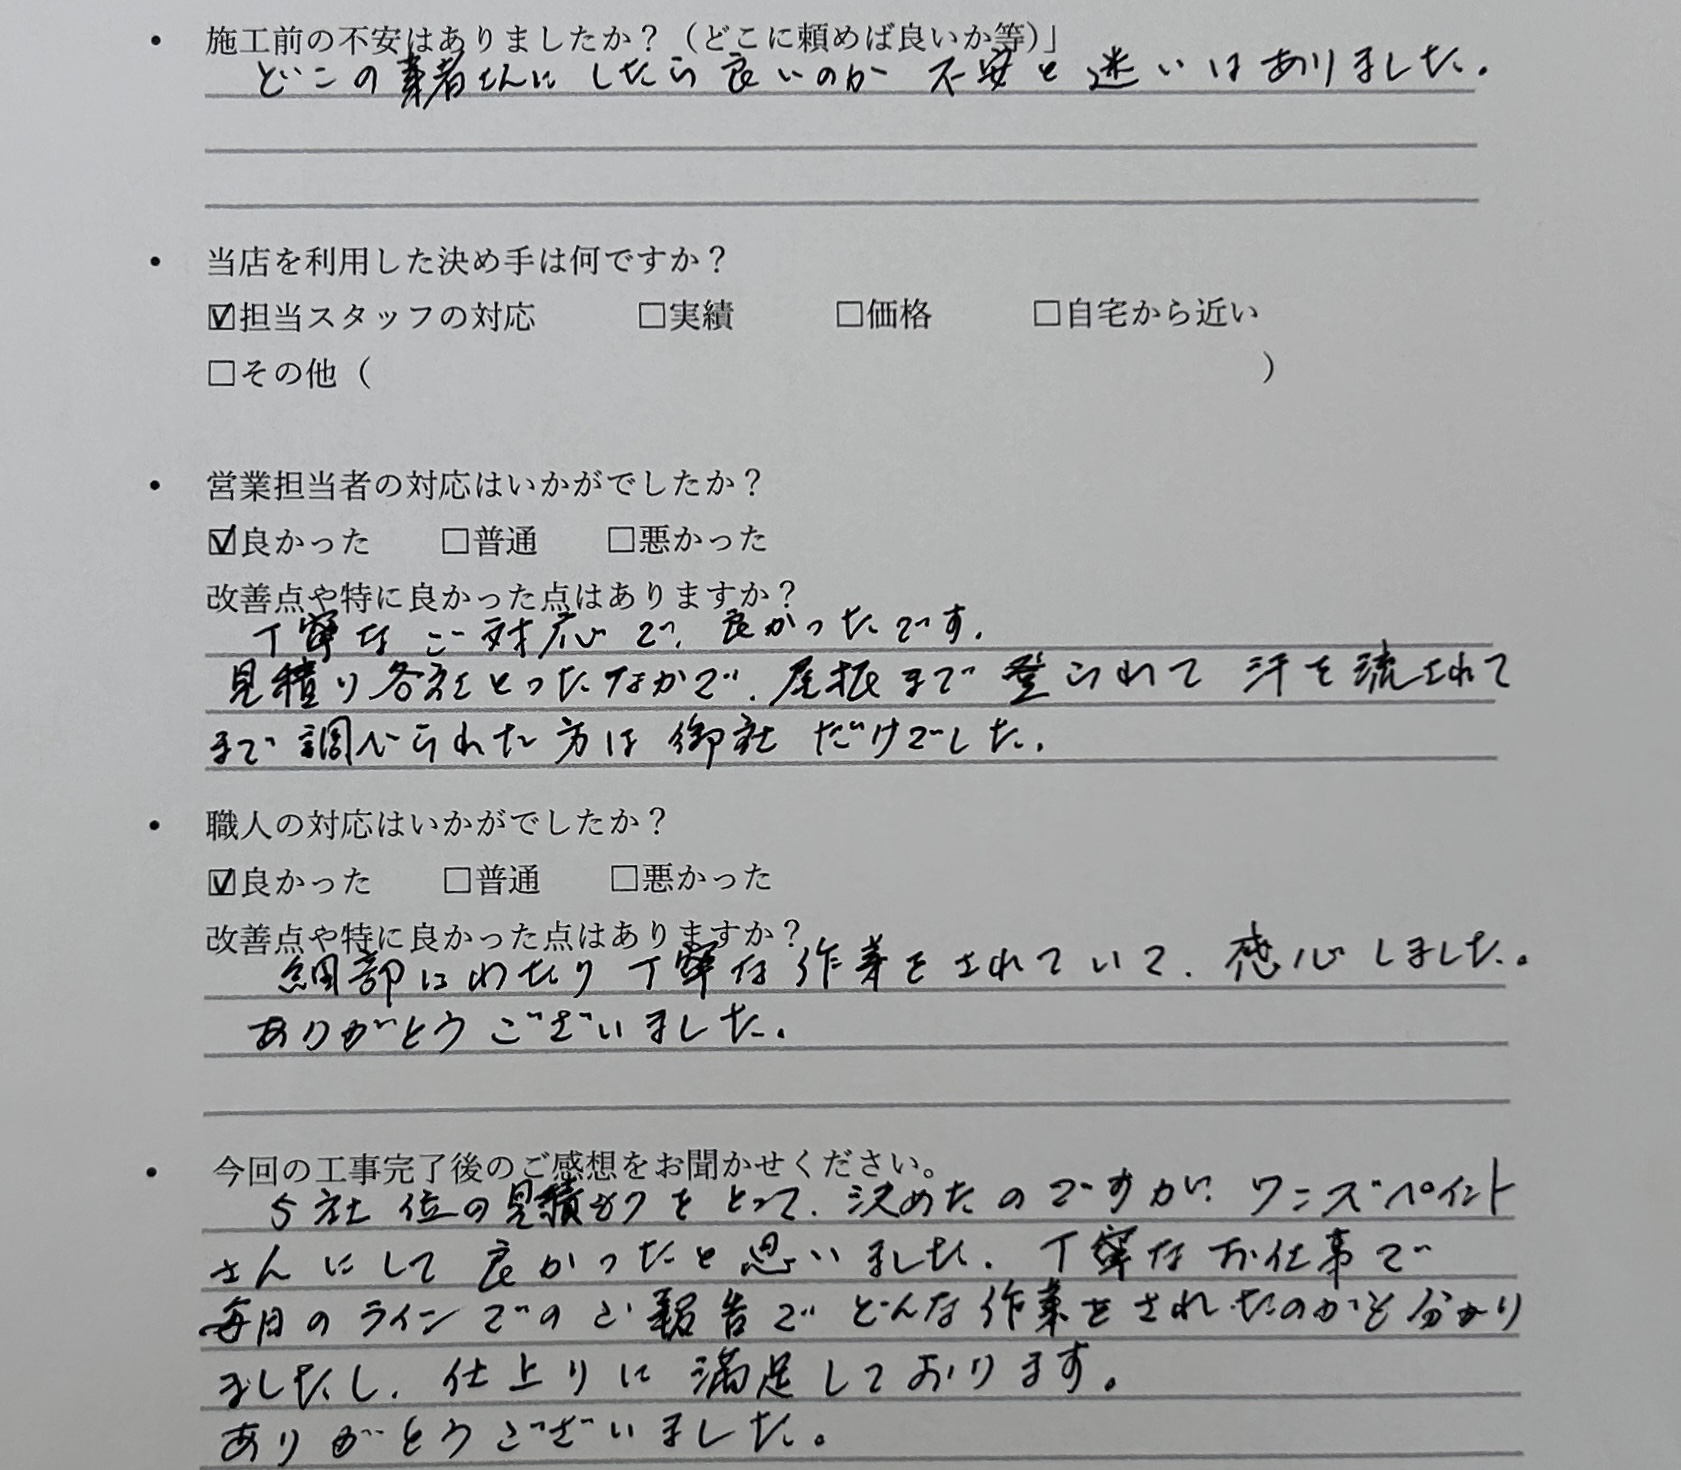 • 施工前の不安はありましたか？（どこに頼めば良いか等)」
どこの業者さんにしたら良いのか 不安と迷いはありました。
• 当店を利用した決め手は何ですか？
☑担当スタッフの対応 □実績 □価格 □自宅から近い
□その他（ ）
• 営業担当者の対応はいかがでしたか？
☑良かった □普通 □悪かった
改善点や特に良かった点はありますか？
丁寧なご対応で、良かったです。
見積り各社とったなかで、屋根まで登られて 汗を流されて
まで調べられた方は御社だけでした。
• 職人の対応はいかがでしたか？
☑良かった □普通 □悪かった
改善点や特に良かった点はありますか？
細部にわたり丁寧な作業をされていて、感心しました。
ありがとうございました。
• 今回の工事完了後のご感想をお聞かせください。
5社位の見積もりをとって、決めたのですが、ワンズペイント
さんにして良かったと思いました。丁寧なお仕事で
毎日のラインでのご報告でどんな作業をされたのかも分かり
ましたし、仕上りに満足しております。
ありがとうございました。